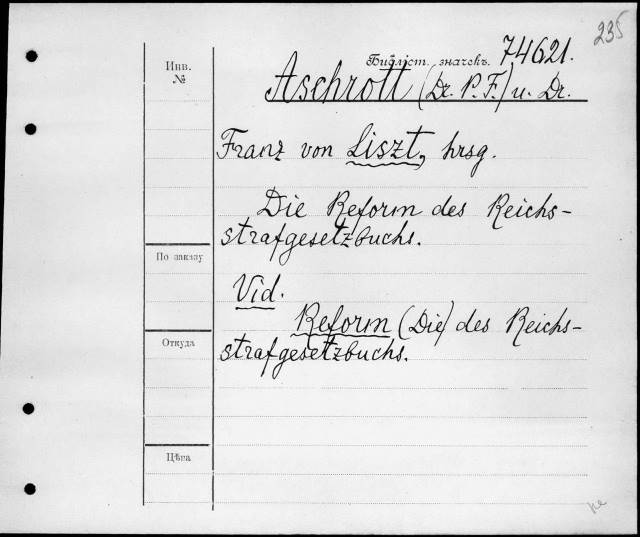 235
Инв.
№
Библіот. значекъ. 74621.
Aschrott (Dr. P. F.) u. Dr.
Franz von Liszt, hrsg.
Die Reform des Reichs-
strafgesetzbuchs.
По заказу
Vid.
Reform (Die) des Reichs-
Откуда
strafgesetzbuchs.
Цѣна